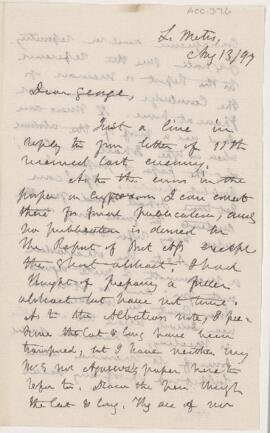 ACC-576
L. Metis,
Aug 13/97
Dear George,
Just a line in
reply to your letter of 11th
received last evening.
As to the errors in the
paper on I can correct
these for final publication, and
no publication is desired in
the Report of Brit Ass except
the short abstract. I had
thought of preparing a fuller
abstract but have not time.
As to the note, I per-
ceive the Lat & Long have been
transposed, but I have neither my
nor paper here to
refer to. Know the here might
the Lat & Long. They are of no